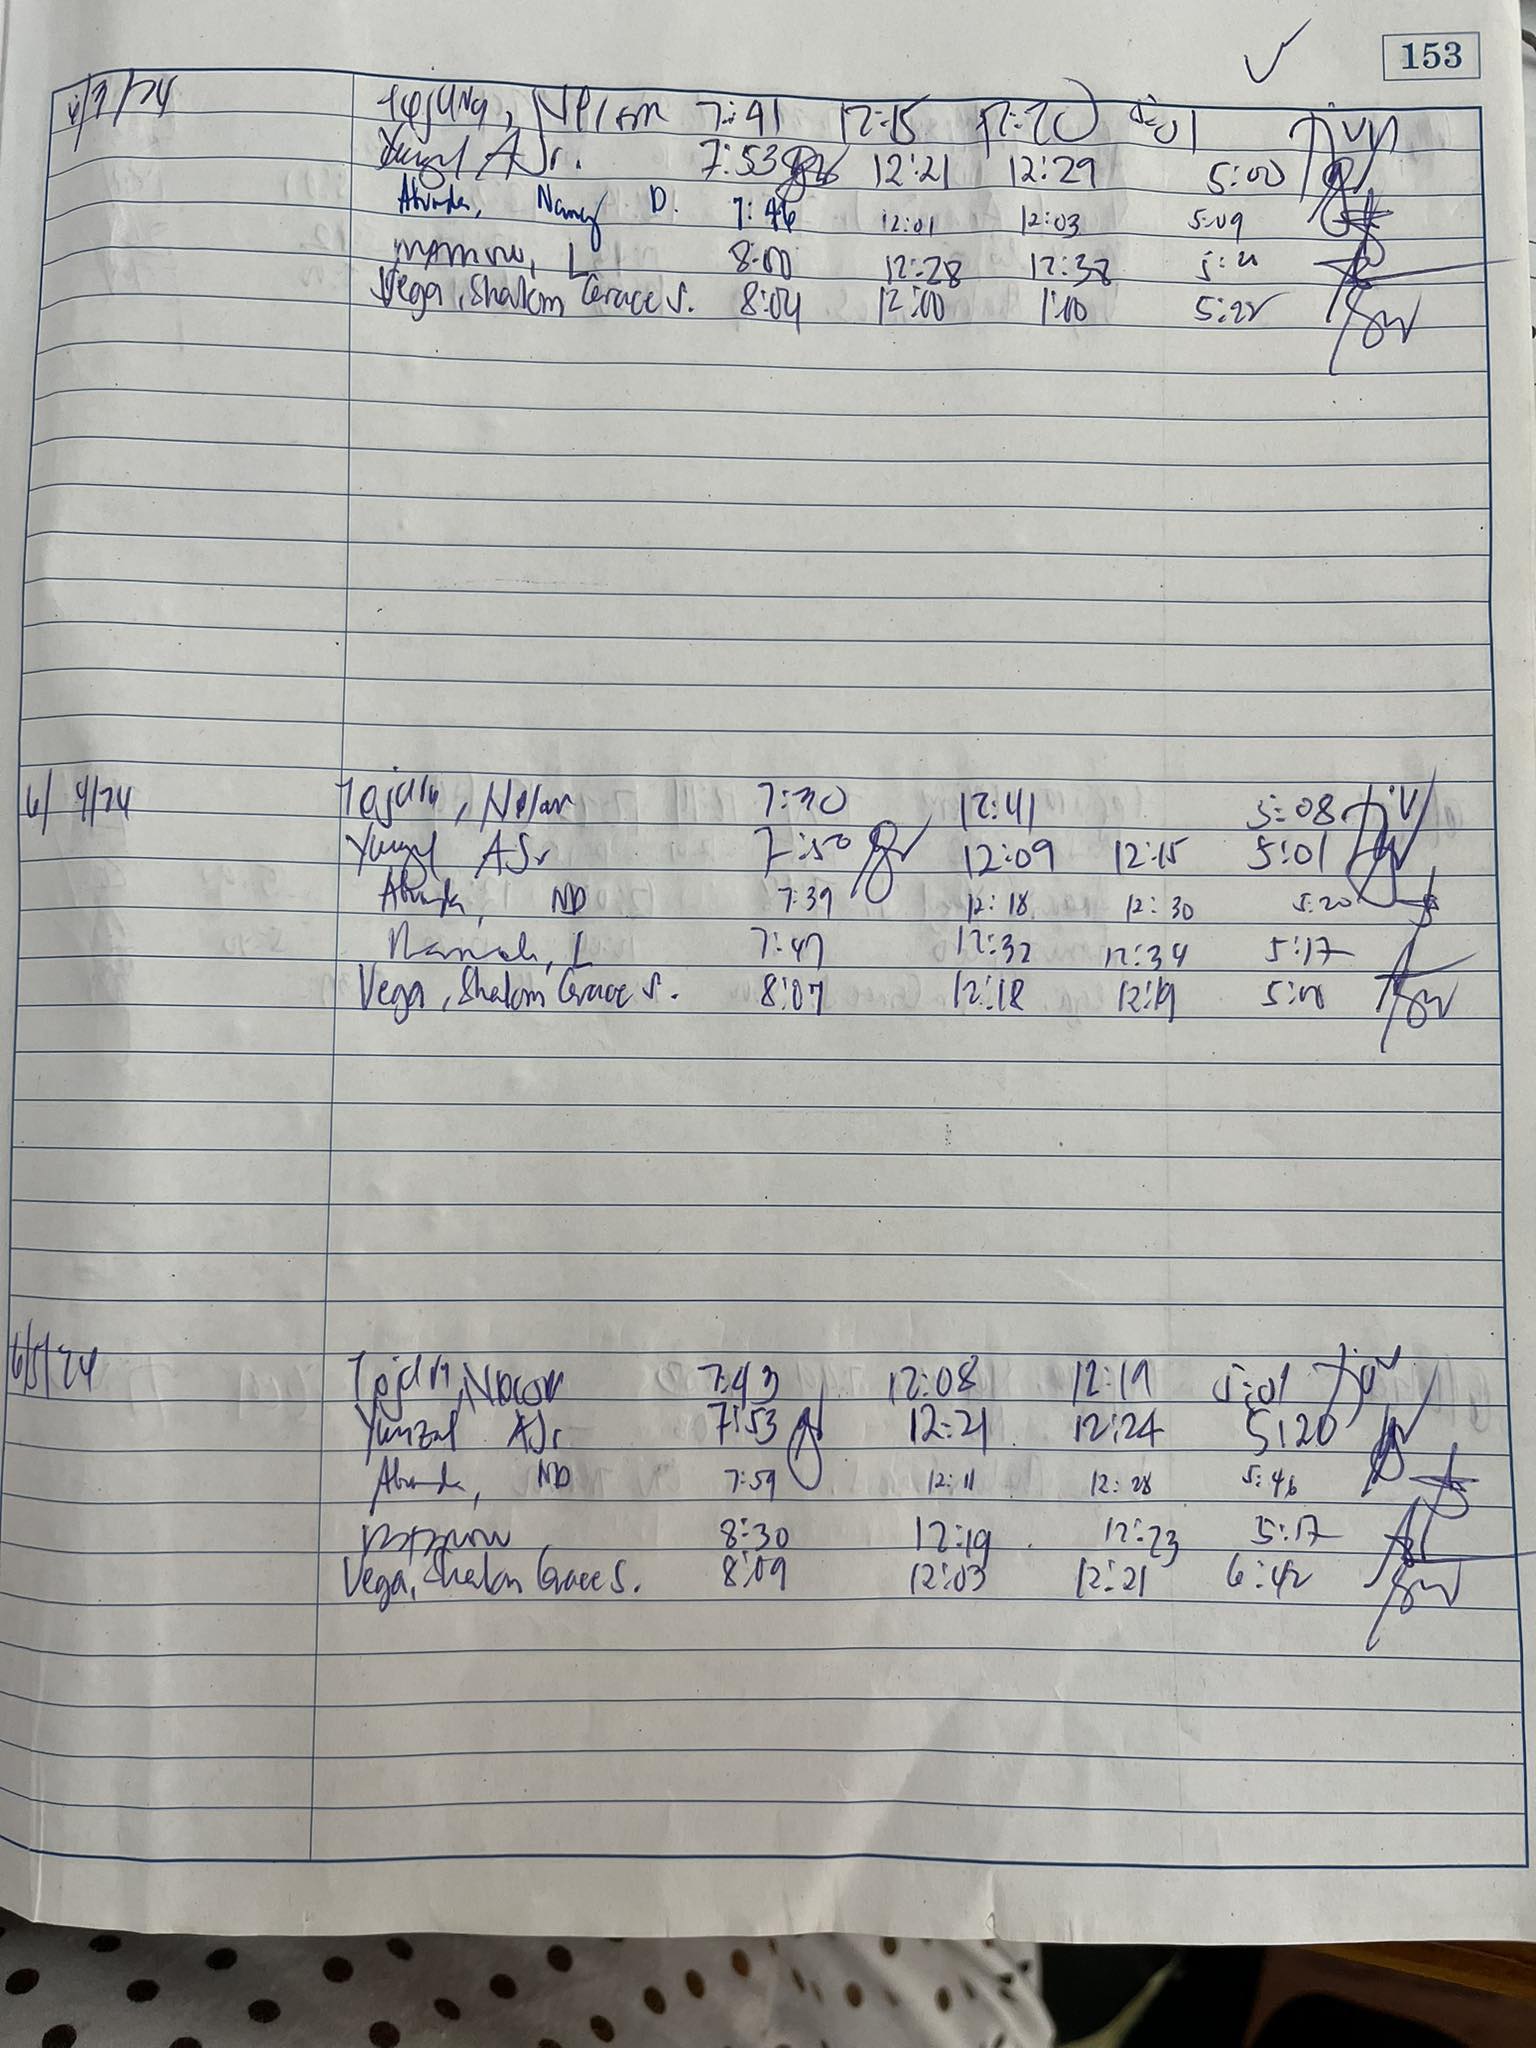 153
6/3/24 7:41 12:15 12:20 5:01
Yunzal A Jr. 7:53 12:21 12:29 5:00
Abunda, Nancy D. 7:46 12:01 12:03 5:09
L 8:00 12:28 12:38
Vega, Shalom Grace S. 8:04 12:00 1:00 5:22
6/4/24 7:30 12:41 5:08
Yunzal A Jr 7:50 12:09 12:15 5:01
Abunda, ND 7:39 12:18 12:30 5:20
L 7:47 12:32 12:34 5:17
Vega, Shalom Grace S. 8:07 12:18 12:19 5:00
6/5/24 7:43 12:08 12:19 5:01
Yunzal A Jr 7:53 12:21 12:24 5:20
Abunda, ND 7:59 12:11 12:28 5:46
8:30 12:19 12:23 5:17
Vega, Shalom Grace S. 8:09 12:03 12:21 6:42